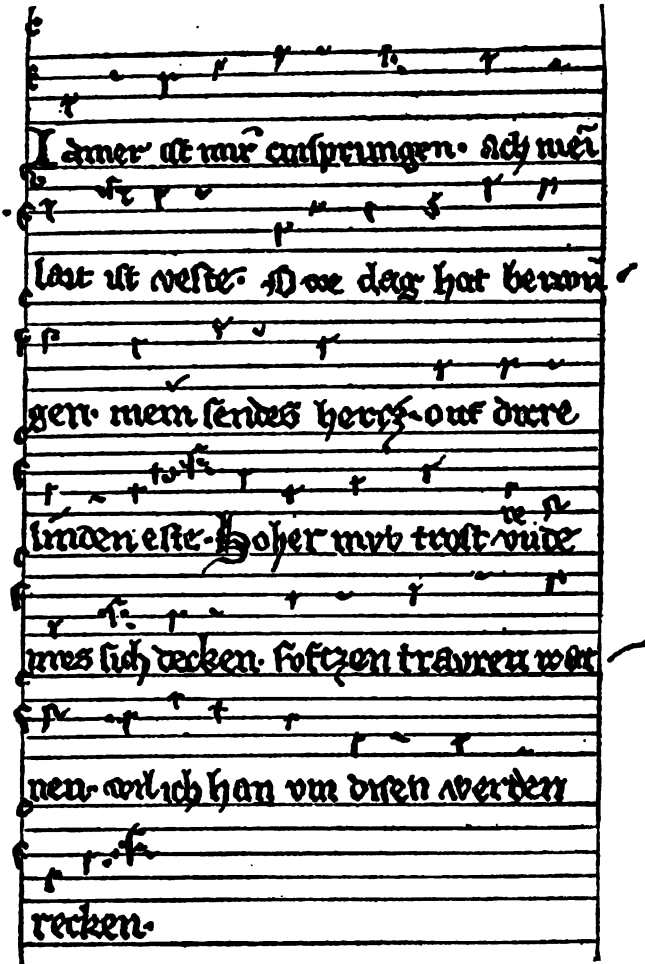 Jamer ist mir entsprungen. Ach mei
lait ist veste. O we dag hat betwu
gen. mein sendes hercz. ouf durre
linden este. Hoher myb trost
mes sich decken. softzen trauren wei
nen. wil ich han um disen werden
recken.